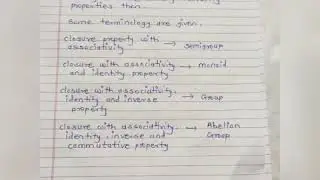 properties then
Some terminology are given.
closure property with
associativity → semigroup
closure with associativity → monoid
and identity property
closure with associativity,
identity and inverse → Group
property
closure with associativity, → Abelian
identity, inverse and Group
commutative property